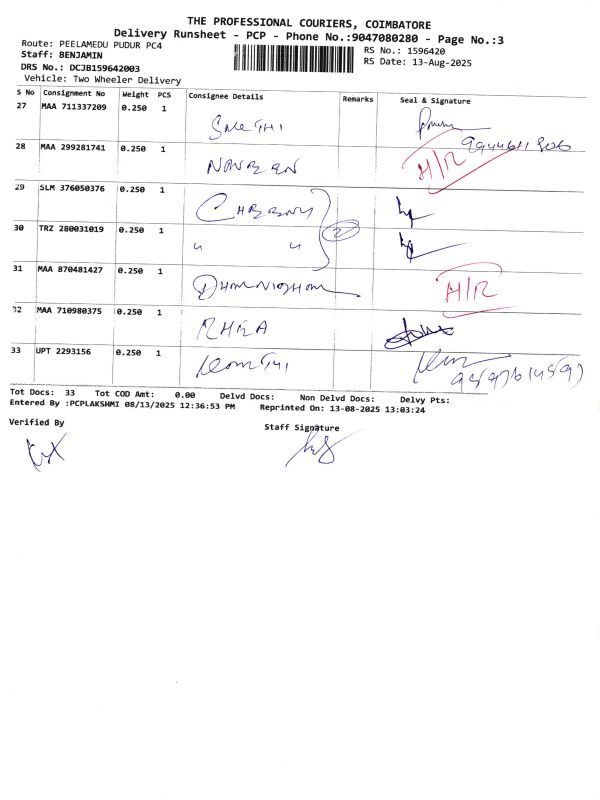 THE PROFESSIONAL COURIERS, COIMBATORE
Delivery Runsheet - PCP - Phone No.:9047080280 - Page No.:3
Route: PEELAMEDU PUDUR PC4
Staff: BENJAMIN
DRS No.: DCJB159642003
Vehicle: Two Wheeler Delivery
RS No.: 1596420
RS Date: 13-Aug-2025
S No Consignment No Weight PCS Consignee Details Remarks Seal & Signature
27 MAA 711337209 0.250 1
28 MAA 299281741 0.250 1 H/R
29 SLM 376050376 0.250 1
30 TRZ 280031019 0.250 1 " " 2
31 MAA 870481427 0.250 1 H/R
32 MAA 710980375 0.250 1
33 UPT 2293156 0.250 1
Tot Docs: 33 Tot COD Amt: 0.00 Delvd Docs: Non Delvd Docs: Delvy Pts:
Entered By :PCPLAKSHMI 08/13/2025 12:36:53 PM Reprinted On: 13-08-2025 13:03:24
Verified By
Staff Signature